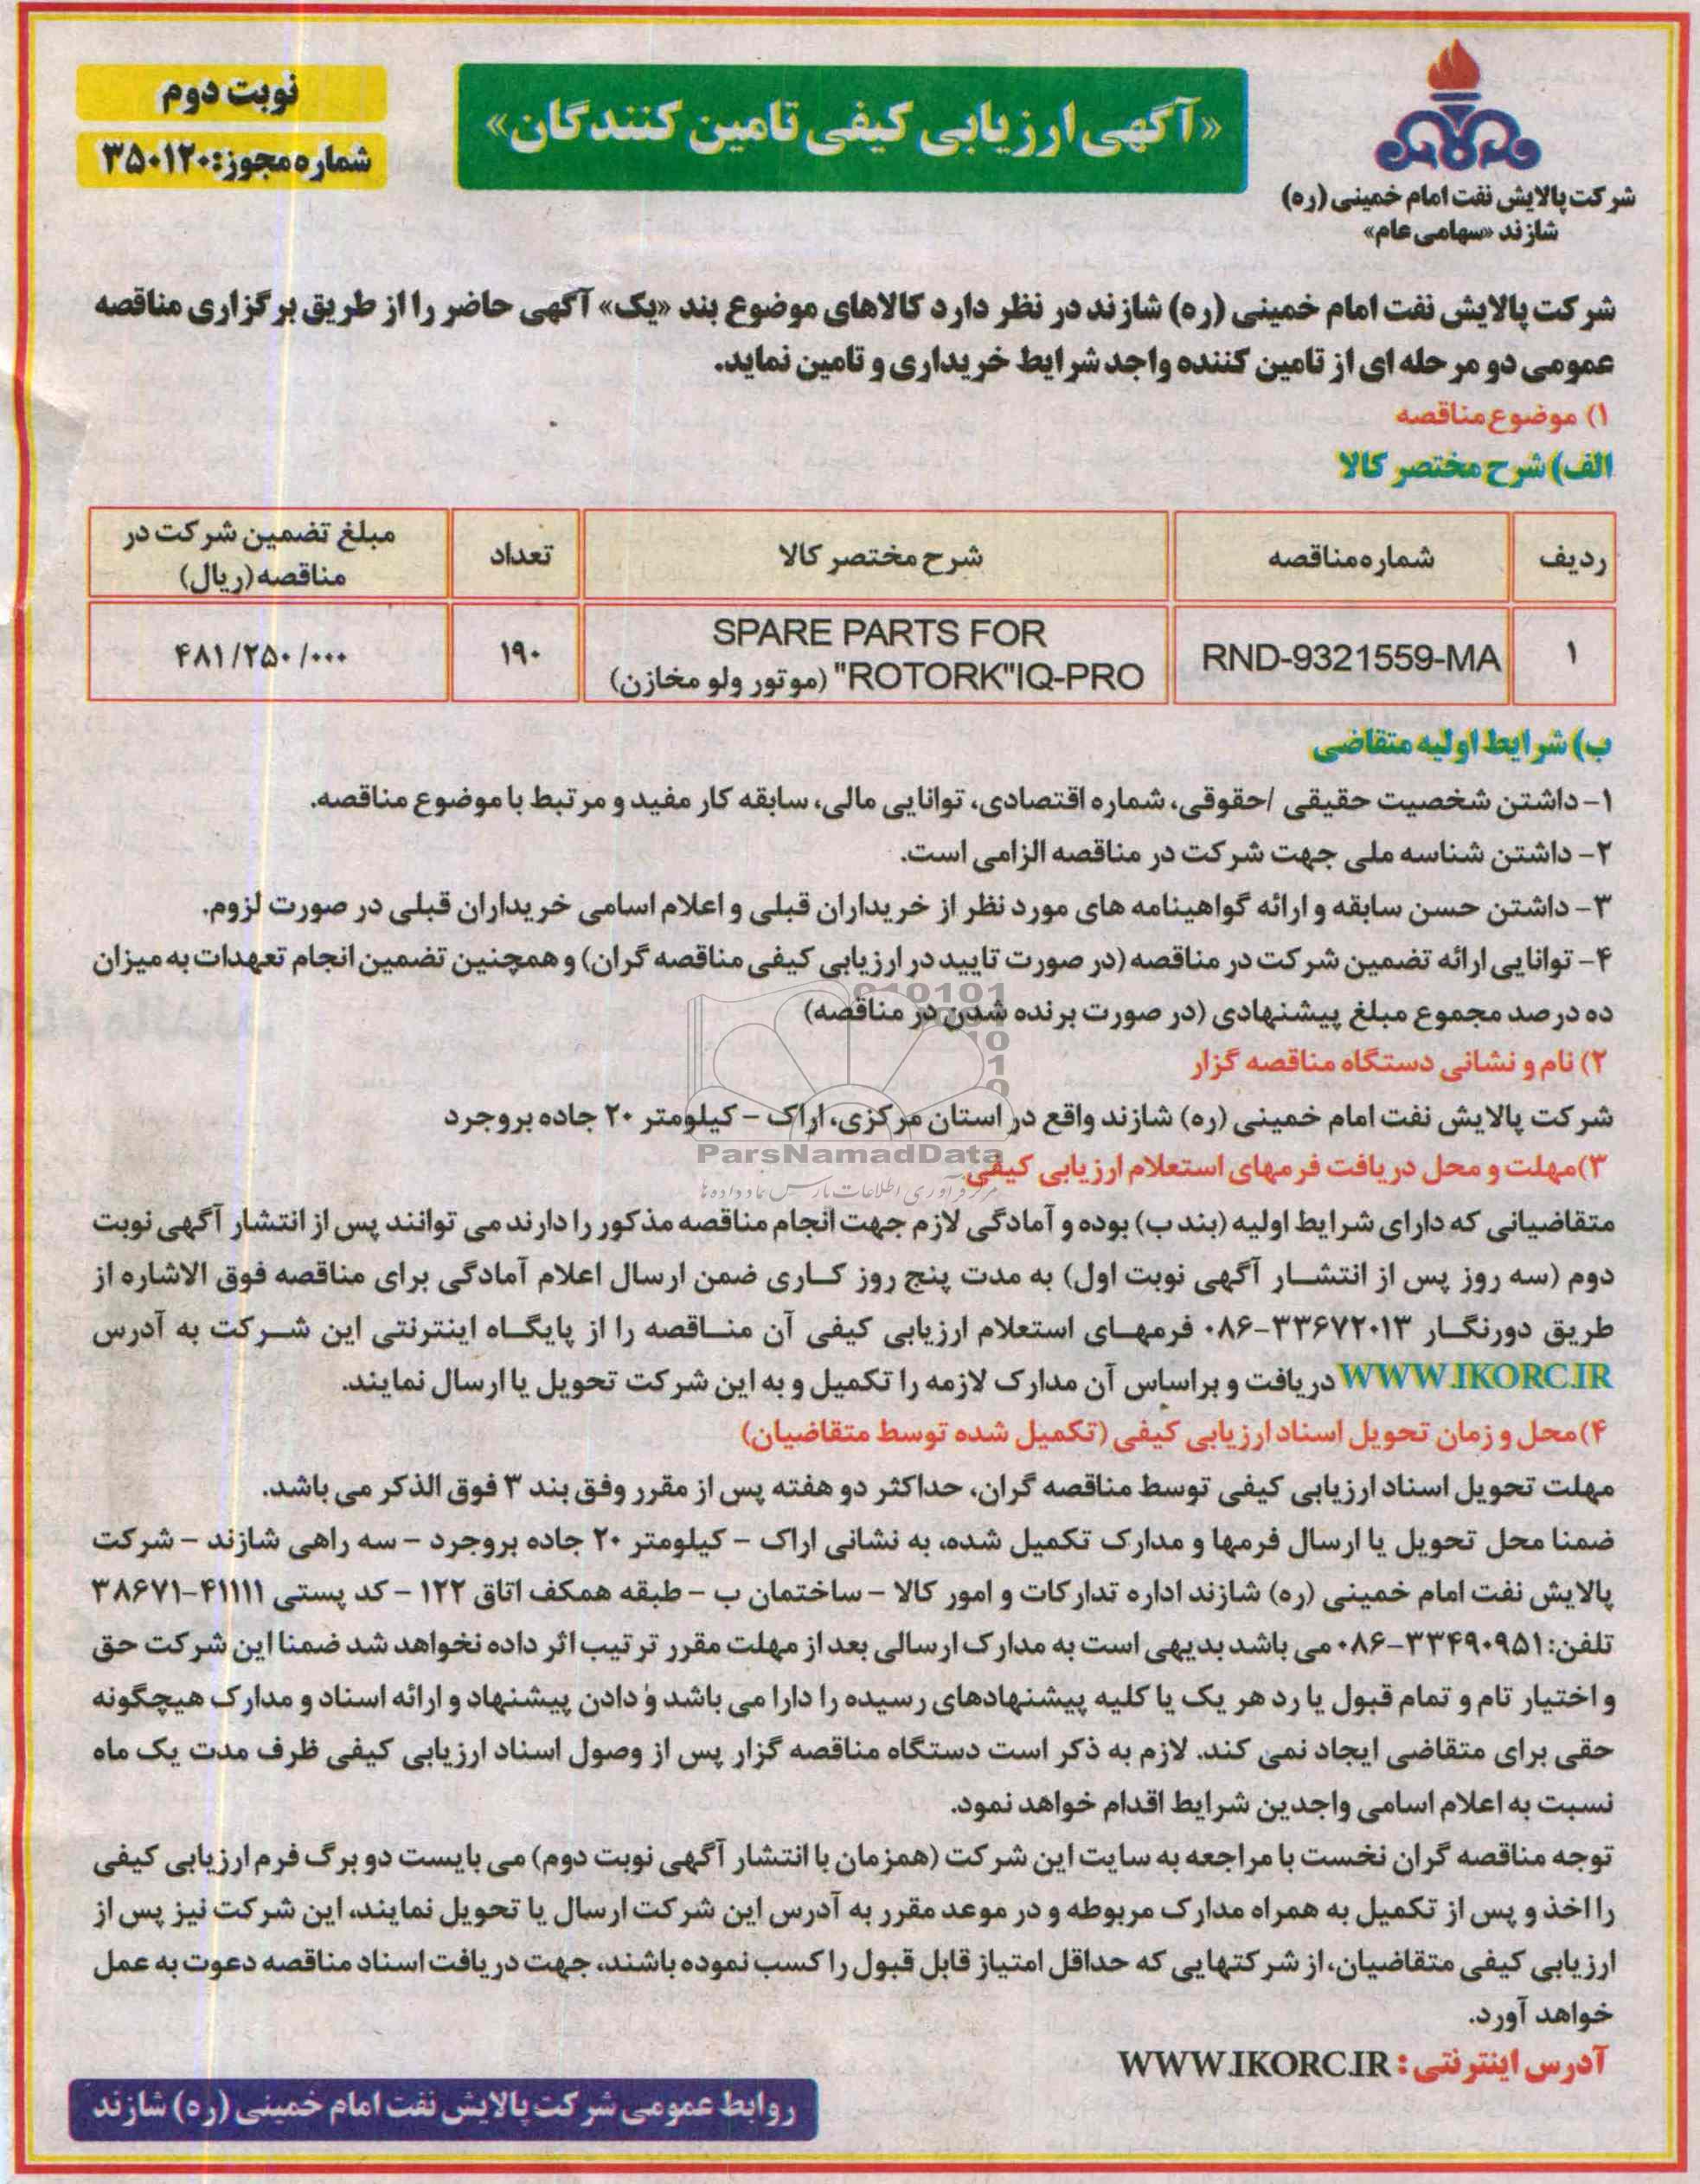 شرکت پالایش نفت امام خمینی (ره)
شازند «سهامی عام»
«آگهی ارزیابی کیفی تامین کنندگان»
نوبت دوم
شماره مجوز: ۳۵۰۱۲۰
شرکت پالایش نفت امام خمینی (ره) شازند در نظر دارد کالاهای موضوع بند «یک» آگهی حاضر را از طریق برگزاری مناقصه
عمومی دو مرحله ای از تامین کننده واجد شرایط خریداری و تامین نماید.
۱) موضوع مناقصه
الف) شرح مختصر کالا
ردیف
شماره مناقصه
شرح مختصر کالا
تعداد
مبلغ تضمین شرکت در
مناقصه (ریال)
۱
RND-9321559-MA
SPARE PARTS FOR
"ROTORK"IQ-PRO (موتور ولو مخازن)
۱۹۰
۴۸۱/۲۵۰/۰۰۰
ب) شرایط اولیه متقاضی
۱- داشتن شخصیت حقیقی /حقوقی، شماره اقتصادی، توانایی مالی، سابقه کار مفید و مرتبط با موضوع مناقصه.
۲- داشتن شناسه ملی جهت شرکت در مناقصه الزامی است.
۳- داشتن حسن سابقه و ارائه گواهینامه های مورد نظر از خریداران قبلی و اعلام اسامی خریداران قبلی در صورت لزوم.
۴- توانایی ارائه تضمین شرکت در مناقصه (در صورت تایید در ارزیابی کیفی مناقصه گران) و همچنین تضمین انجام تعهدات به میزان
ده درصد مجموع مبلغ پیشنهادی (در صورت برنده شدن در مناقصه)
۲) نام و نشانی دستگاه مناقصه گزار
شرکت پالایش نفت امام خمینی (ره) شازند واقع در استان مرکزی، اراک - کیلومتر ۲۰ جاده بروجرد
ParsNamadData
۳)مهلت و محل دریافت فرمهای استعلام ارزیابی کیفی
مرکز فرآوری اطلاعات پارس نماد داده ها
متقاضیانی که دارای شرایط اولیه (بند ب) بوده و آمادگی لازم جهت انجام مناقصه مذکور را دارند می توانند پس از انتشار آگهی نوبت
دوم (سه روز پس از انتشار آگهی نوبت اول) به مدت پنج روز کاری ضمن ارسال اعلام آمادگی برای مناقصه فوق الاشاره از
طریق دورنگار ۳۳۶۷۲۰۱۳-۰۸۶ فرمهای استعلام ارزیابی کیفی آن مناقصه را از پایگاه اینترنتی این شرکت به آدرس
WWW.IKORC.IR دریافت و براساس آن مدارک لازمه را تکمیل و به این شرکت تحویل یا ارسال نمایند.
۴)محل و زمان تحویل اسناد ارزیابی کیفی (تکمیل شده توسط متقاضیان)
مهلت تحویل اسناد ارزیابی کیفی توسط مناقصه گران، حداکثر دو هفته پس از مقرر وفق بند ۳ فوق الذکر می باشد.
ضمنا محل تحویل یا ارسال فرمها و مدارک تکمیل شده، به نشانی اراک - کیلومتر ۲۰ جاده بروجرد - سه راهی شازند - شرکت
پالایش نفت امام خمینی (ره) شازند اداره تدارکات و امور کالا - ساختمان ب - طبقه همکف اتاق ۱۲۲ - کد پستی ۴۱۱۱۱-۳۸۶۷۱
تلفن: ۳۳۴۹۰۹۵۱-۰۸۶ می باشد بدیهی است به مدارک ارسالی بعد از مهلت مقرر ترتیب اثر داده نخواهد شد ضمنا این شرکت حق
و اختیار تام و تمام قبول یا رد هر یک یا کلیه پیشنهادهای رسیده را دارا می باشد و دادن پیشنهاد و ارائه اسناد و مدارک هیچگونه
حقی برای متقاضی ایجاد نمی کند. لازم به ذکر است دستگاه مناقصه گزار پس از وصول اسناد ارزیابی کیفی ظرف مدت یک ماه
نسبت به اعلام اسامی واجدین شرایط اقدام خواهد نمود.
توجه مناقصه گران نخست با مراجعه به سایت این شرکت (همزمان با انتشار آگهی نوبت دوم) می بایست دو برگ فرم ارزیابی کیفی
را اخذ و پس از تکمیل به همراه مدارک مربوطه و در موعد مقرر به آدرس این شرکت ارسال یا تحویل نمایند، این شرکت نیز پس از
ارزیابی کیفی متقاضیان، از شرکتهایی که حداقل امتیاز قابل قبول را کسب نموده باشند، جهت دریافت اسناد مناقصه دعوت به عمل
خواهد آورد.
آدرس اینترنتی : WWW.IKORC.IR
روابط عمومی شرکت پالایش نفت امام خمینی (ره) شازند